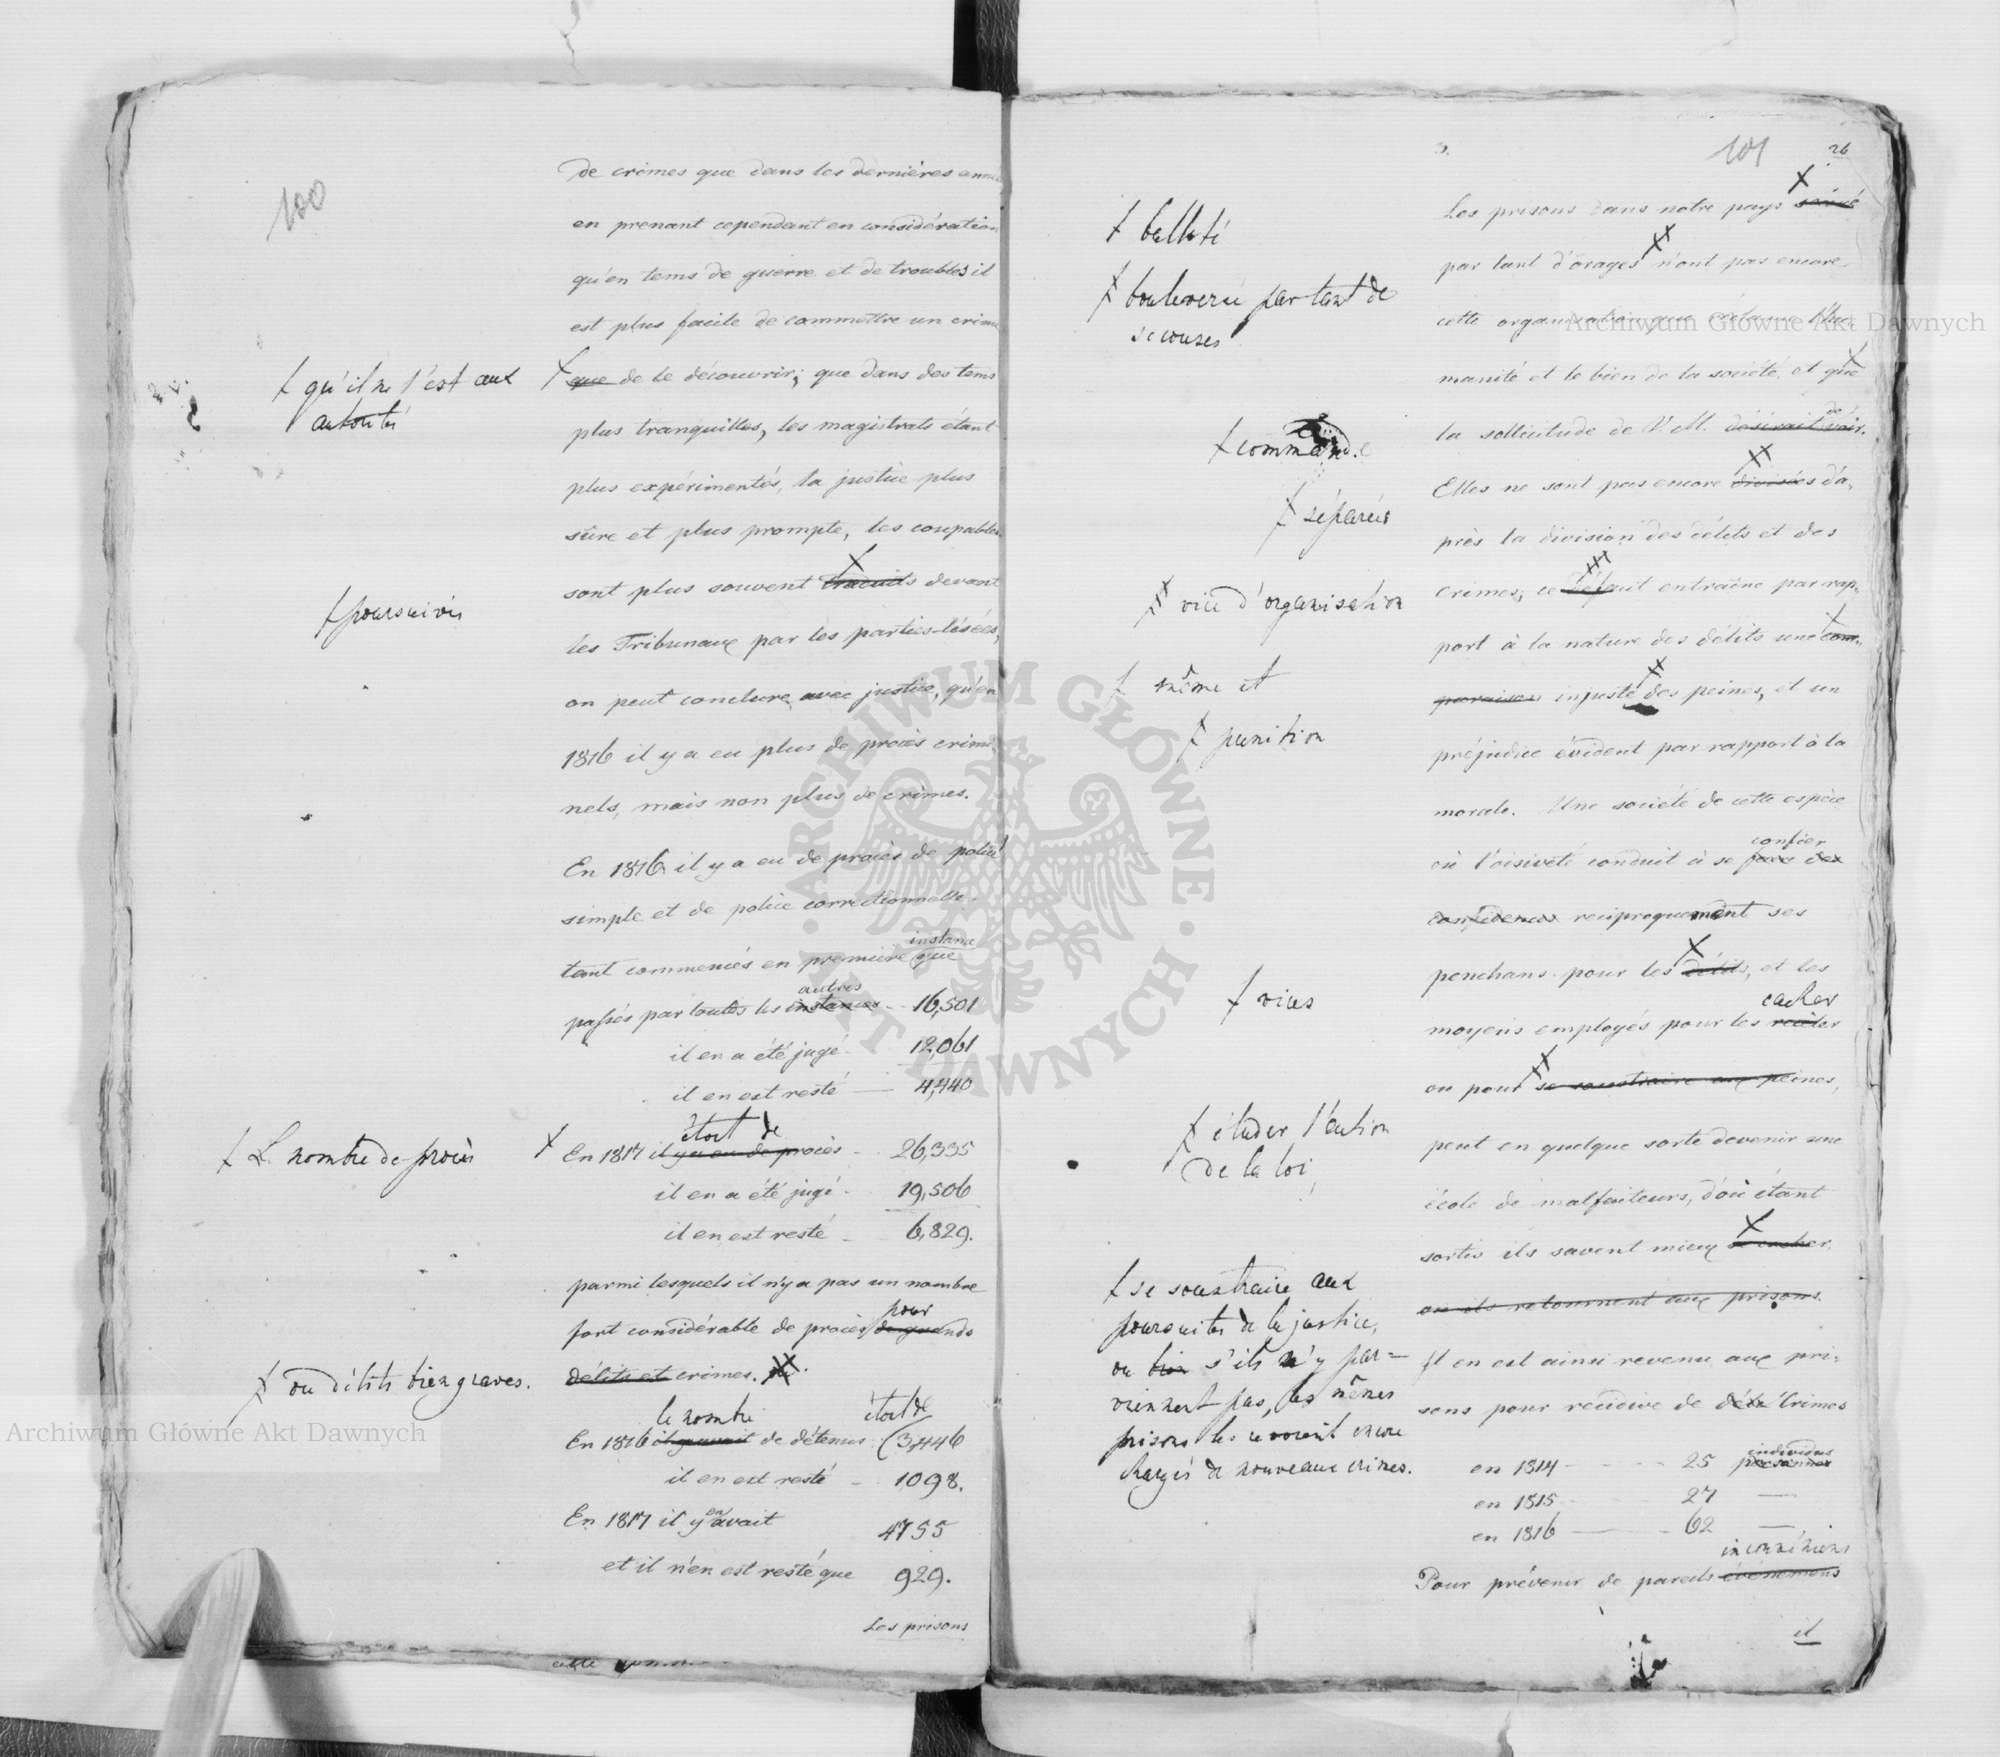 100
de crimes que dans les dernières année
en prenant cependant en considération
qu'en tems de guerre et de troubles il
est plus facile de commettre un crime
que de le découvrir; que dans des tems
ꝉ qu'il ne l'est aux
autorités
plus tranquilles, les magistrats étant
plus expérimentés, la justice plus
sûre et plus prompte, les coupables
sont plus souvent traduits devant
ꝉ poursuivis
les Tribunaux par les parties lésées,
on peut conclure avec justice, qu'en
1816 il y a eu plus de procès crimi-
nels, mais non plus de crimes.
En 1816 il y a eu de procès de police
simple et de police correctionnelle
tant commencés en première instance que
passés par toutes les instances autres - 16,501
il en a été jugé - 12,061
il en est resté — 4,440
ꝉ Le nombre de procès
En 1817 il y a eu de procès étoit de - 26,335
il en a été jugé - 19,506
il en est resté - 6,829.
parmi lesquels il n'y a pas un nombre
fort considérable de procès de grands pour
délits et crimes.
ꝉ ou délits bien graves.
En 1816 il y avait le nombre de détenus étoit de 3,446
il en est resté - 1098.
En 1817 il y en avait 4755
et il n'en est resté que 929.
Les prisons
101
26
Les prisons dans notre pays
ꝉ balloté
par tant d'orages n'ont pas encore
ꝉ bouleversé par tant de
secousses
cette organisation que réclame l'hu-
manité et le bien de la société, et que
la sollicitude de V. M. désirait de voir.
ꝉ commande
Elles ne sont pas encore divisées d'a-
ꝉ séparées
près la division des délits et des
crimes; ce défaut entraîne par rap-
ꝉ vice d'organisation
port à la nature des délits une com-
paraison injuste des peines, et un
ꝉ même et
ꝉ punition
préjudice évident par rapport à la
morale. Une société de cette espèce
où l'oisiveté conduit à se faire des confier
confidences reciproquement ses
penchans pour les délits, et les
ꝉ vices
moyens employés pour les recéler cacher
ou pour se soustraire aux peines,
ꝉ éluder l'action
de la loi,
peut en quelque sorte devenir une
école de malfaiteurs, d'où étant
sortis ils savent mieux se cacher,
ou ils retournent aux prisons.
ꝉ se soustraire aux
poursuites de la justice,
ou bien s'ils n'y par=
viennent pas, les mêmes
prisons les revoient encore
chargés de nouveaux crimes.
Il en est ainsi revenu aux pri-
sons pour récidive de crimes
en 1814 - - - 25 personnes individus
en 1815 - - - 27 —
en 1816 — - 62 —
Pour prévenir de pareils événemens inconvéniens
il
Archiwum Główne Akt Dawnych
Archiwum Główne Akt Dawnych
ARCHIWUM GŁÓWNE · AKT DAWNYCH ·